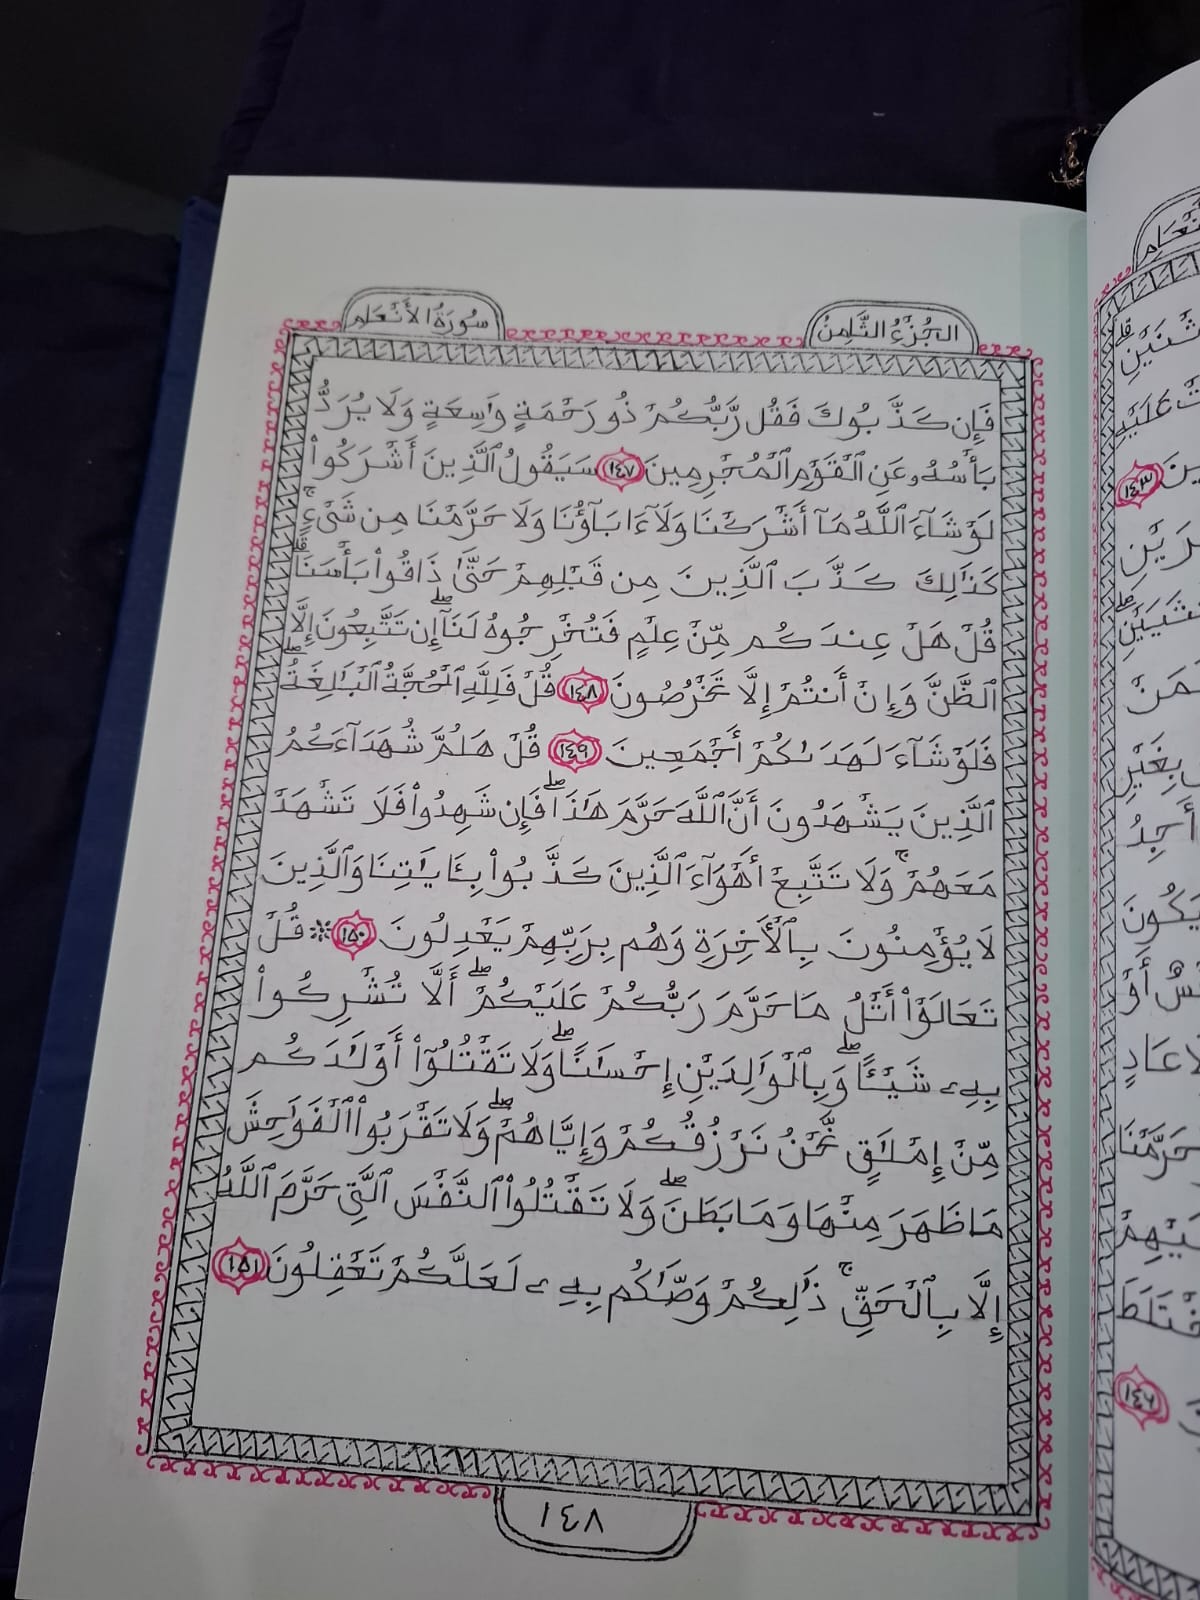 الجُزْءُ الثَّامِنُ
سُورَةُ الأَنْعَام
فَإِن كَذَّبُوكَ فَقُل رَّبُّكُمْ ذُو رَحْمَةٍ وَٰسِعَةٍ وَلَا يُرَدُّ
بَأْسُهُۥ عَنِ ٱلْقَوْمِ ٱلْمُجْرِمِينَ ١٤٧ سَيَقُولُ ٱلَّذِينَ أَشْرَكُوا۟
لَوْ شَآءَ ٱللَّهُ مَآ أَشْرَكْنَا وَلَآ ءَابَآؤُنَا وَلَا حَرَّمْنَا مِن شَىْءٍ ۚ
كَذَٰلِكَ كَذَّبَ ٱلَّذِينَ مِن قَبْلِهِمْ حَتَّىٰ ذَاقُوا۟ بَأْسَنَا ۗ
قُلْ هَلْ عِندَكُم مِّنْ عِلْمٍ فَتُخْرِجُوهُ لَنَآ ۖ إِن تَتَّبِعُونَ إِلَّا
ٱلظَّنَّ وَإِنْ أَنتُمْ إِلَّا تَخْرُصُونَ ١٤٨ قُلْ فَلِلَّهِ ٱلْحُجَّةُ ٱلْبَٰلِغَةُ ۖ
فَلَوْ شَآءَ لَهَدَىٰكُمْ أَجْمَعِينَ ١٤٩ قُلْ هَلُمَّ شُهَدَآءَكُمُ
ٱلَّذِينَ يَشْهَدُونَ أَنَّ ٱللَّهَ حَرَّمَ هَٰذَا ۖ فَإِن شَهِدُوا۟ فَلَا تَشْهَدْ
مَعَهُمْ ۚ وَلَا تَتَّبِعْ أَهْوَآءَ ٱلَّذِينَ كَذَّبُوا۟ بِـَٔايَٰتِنَا وَٱلَّذِينَ
لَا يُؤْمِنُونَ بِٱلْـَٔاخِرَةِ وَهُم بِرَبِّهِمْ يَعْدِلُونَ ١٥٠ ۞ قُلْ
تَعَالَوْا۟ أَتْلُ مَا حَرَّمَ رَبُّكُمْ عَلَيْكُمْ ۖ أَلَّا تُشْرِكُوا۟
بِهِۦ شَيْـًٔا ۖ وَبِٱلْوَٰلِدَيْنِ إِحْسَٰنًا ۖ وَلَا تَقْتُلُوٓا۟ أَوْلَٰدَكُم
مِّنْ إِمْلَٰقٍ ۖ نَّحْنُ نَرْزُقُكُمْ وَإِيَّاهُمْ ۖ وَلَا تَقْرَبُوا۟ ٱلْفَوَٰحِشَ
مَا ظَهَرَ مِنْهَا وَمَا بَطَنَ ۖ وَلَا تَقْتُلُوا۟ ٱلنَّفْسَ ٱلَّتِى حَرَّمَ ٱللَّهُ
إِلَّا بِٱلْحَقِّ ۚ ذَٰلِكُمْ وَصَّىٰكُم بِهِۦ لَعَلَّكُمْ تَعْقِلُونَ ١٥١
١٤٧